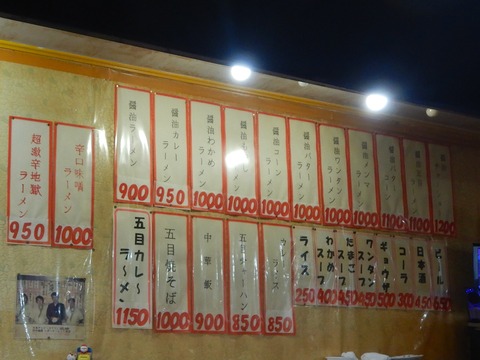 超激辛地獄ラーメン
950
辛口味噌ラーメン
1000
醤油ラーメン
900
醤油カレーラーメン
950
醤油わかめラーメン
1000
1000
醤油コーンラーメン
1000
醤油バターラーメン
1000
醤油ワンタンラーメン
1000
醤油メンマラーメン
1000
1100
1100
1200
五目カレーラ〜メン
1150
五目焼そば
1000
中華飯
900
五目チャーハン
850
カレーライス
850
ライス
250
わかめスープ
400
たまごスープ
450
ワンタンスープ
450
ギョウザ
500
コーラ
300
日本酒
450
ビール
650